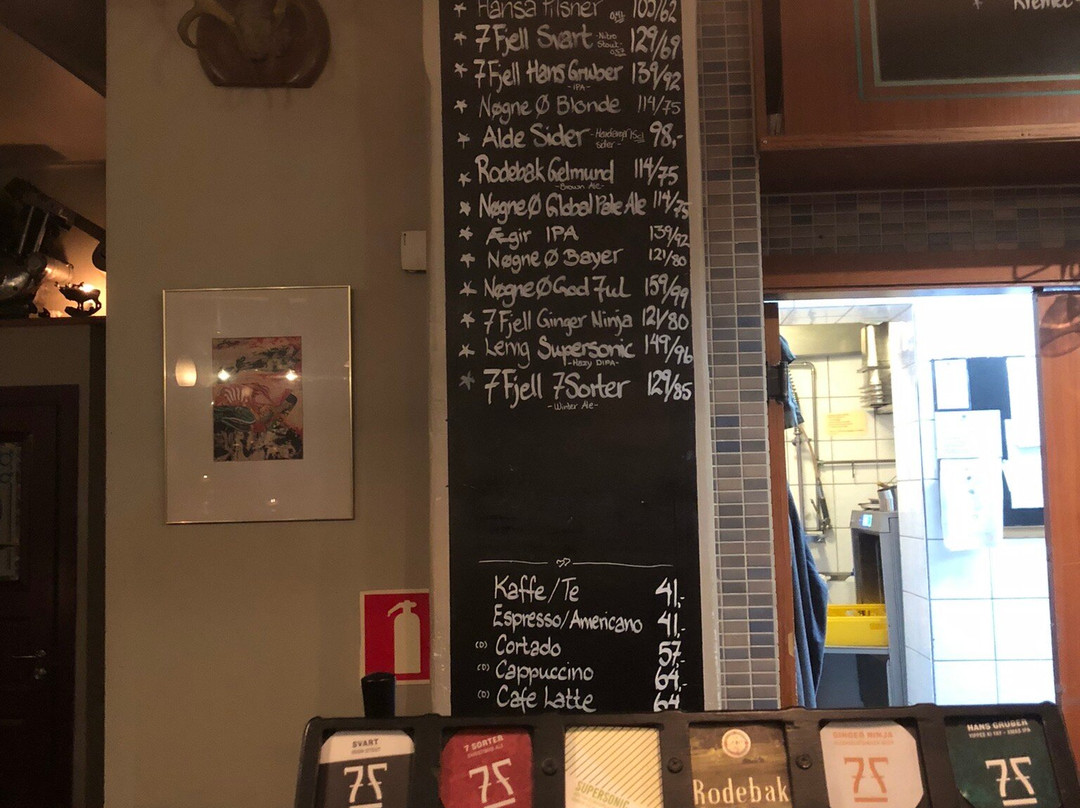 * Hansa Pilsner 0,4l 105/62
* 7 Fjell Svart -Nitro Stout- 129/69
* 7 Fjell Hans Gruber 139/92
-IPA-
* Nøgne Ø Blonde 114/75
* Alde Sider sider- 98,-
* Rodebak Gelmund 114/75
-Brown Ale-
* Nøgne Ø Global Pale Ale 114/75
* Ægir IPA 139/92
* Nøgne Ø Bayer 121/80
* Nøgne Ø God Jul 159/99
* 7 Fjell Ginger Ninja 121/80
* Lervig Supersonic 149/96
-Hazy DIPA-
* 7 Fjell 7 Sorter 129/85
-Winter Ale-
Kaffe/Te 41,-
Espresso/Americano 41,-
(D) Cortado 57,-
(D) Cappuccino 64,-
(D) Cafe Latte 64
SVART
7F
7 SORTER
7F
SUPERSONIC
Rodebak
GINGER NINJA
7F
HANS GRUBER
7F